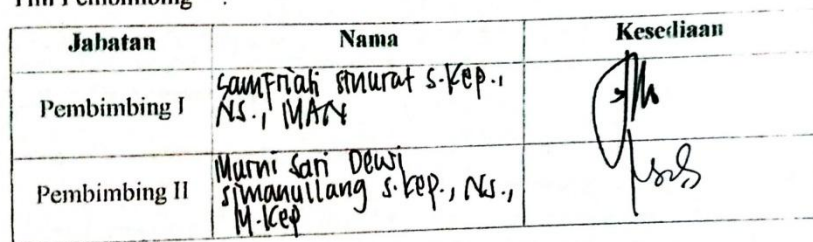 Tim Pembimbing :
Jabatan Nama Kesediaan
Pembimbing I
Samfriati sinurat s.kep.,
Ns., MAN
Pembimbing II
Murni Sari Dewi
simanullang s.kep., Ns.,
M.Kep